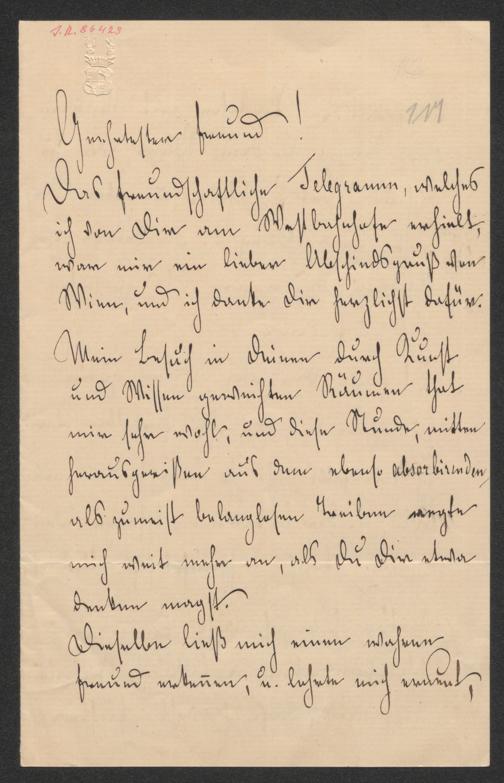 J. N. 86423
111
Geehrtester Freund!
Das freundschaftliche Telegramm, welches
ich von Dir am Westbahnhofe erhielt,
war mir ein lieber Abschiedsgruß von
Wien, und ich danke Dir herzlichst dafür.
Mein Besuch in Deinen durch Kunst
und Wissen geweihten Räumen that
mir sehr wohl, und diese Stunde, mitten
herausgerißen aus dem ebenso absorbirenden,
als zumeist belanglosen Treiben regte
mich weit mehr an, als Du Dir etwa
denken magst.
Dieselbe ließ mich einen wahren
Freund erkennen, u. lehrte mich erneut,